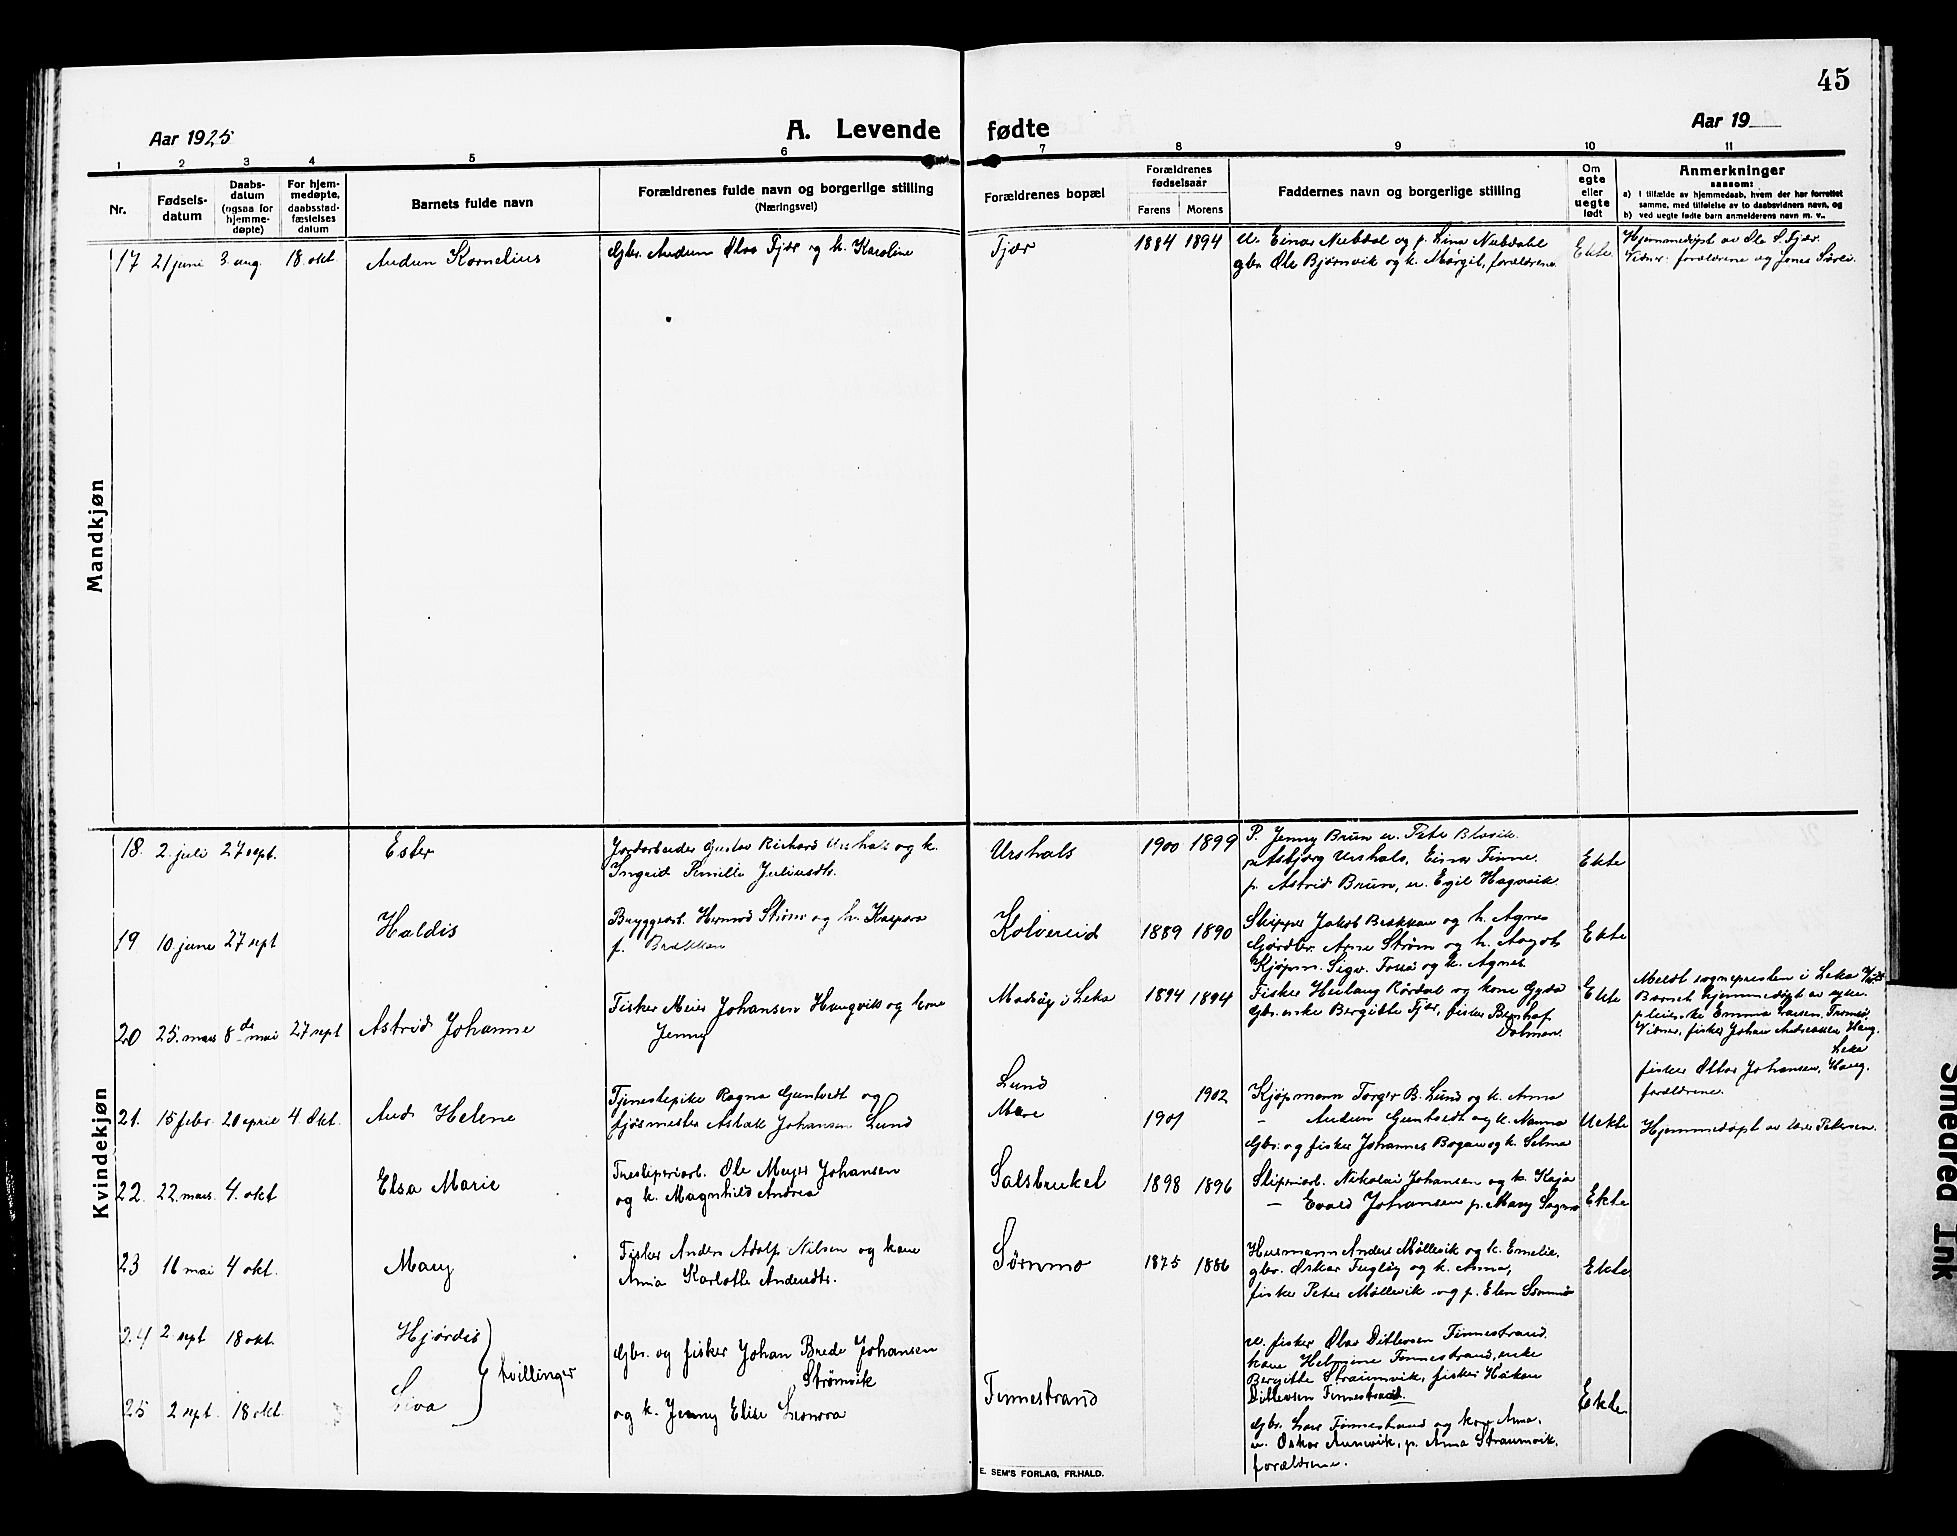 45
Aar 1925
A. Levende fødte
Aar 19
1 2 3 4 5 6 7 8 9 10 11
Nr.
Fødsels-
datum
Daabs-
datum
(ogsaa for
hjemme-
døpte)
For hjem-
medøpte,
daabsstad-
fæstelses
datum
Barnets fulde navn
Forældrenes fulde navn og borgerlige stilling
(Næringsvei)
Forældrenes bopæl
Forældrenes
fødselsaar
Farens Morens
Faddernes navn og borgerlige stilling
Om
egte
eller
uegte
født
Anmerkninger
saasom:
a) I tilfælde av hjemmedaab, hvem der har forrettet
samme, med tilføielse av to daabsvidners navn, og
b) ved uegte fødte barn anmelderens navn m. v..
Mandkjøn
17 21 juni 3. aug. 18. okt. Audun Kornelius
Gbr. Audun Olsa Fjær og k. Karoline
Fjær
1884 1894
u. Einar Nubdal og p. Lina Nubdahl
gbr. Ole Bjørnvik og k. Margit, forældrene.
Ekte
Hjemmedøpt av Ole S. Fjær.
Vidner: forældrene og Jens
Kvindekjøn
18. 2. juli 27 sept. Ester
Jordarbeider Gustav Richard Urshals og k.
Ingrid Pernille Juliusdtr.
Urshals
1900 1899
P. Jenny Brun u. Pete
Asbjørg Urshals, Einar Finne.
p. Astrid Brun, u. Egil Hagvik
Ekte
19 10. juni 27 sept Haldis
Bryggearb. Hermod Strøm og h. Kaspara
f. Brekkan
Kolvereid
1889 1890
Skipper Jakob Brekkan og h. Agnes
Gårdbr. Arne Strøm og h. Aagot
Kjøpm. Sigv. og k. Agnes.
Ekte
20 25. mars 8de mai 27 sept Astrid Johanne
Fisker Meier Johansen Haugvik og kone
Jenny
Madsøy i Leka
1894 1894
Fisker Heilaug Rørdal og kone Gyda
Gbr. enke Bergitte Fjær, fisker
Dolmen.
Ekte
Meldt sognepresten i Leka
Barnet hjemmedøpt av syke-
pleierske Emma Larsen, Tromsø.
Vidner, fisker Johan Andreassen, Haug.
Leka
fisker Ottar Johansen, Haug.
forældrene.
21. 15 febr. 20 april 4. Okt. Aud Helene
Tjenestepike Ragna Gunhildt og
fjøsmester Aslak Johansen Lund
Lund
Mære
1902
1901
Kjøpmann Torger B. Lund og k. Anna
— Audun og k. Nanna
Gbr. og fisker Johannes Bogan og k. Selma
Uekte
Hjemmedøpt av lærer Petersen.
22. 22. mars. 4. okt Elsa Marie
Tresliperiarb. Ole Meyer Johansen
og k. Magnhild Andrea
Salsbruket
1898 1896
Sliperiarb. Nikolai Johansen og k. Kaja
— Evald Johansen p. Mary
Ekte
23 16 mai 4 okt. Mary
Fisker Anders Adolf Nilsen og kone
Anna Karlotte Andersdtr.
Sørnmo
1875 1886
Husmann Anders Møllevik og k. Emelie.
gbr. Oskar Fugløy og k. Anna,
fisker Peter Møllevik og p. Elen
Ekte
24 2 sept 18 okt. Hjørdis
tvillinger
25 2 sept. 18 okt. Liva
Gbr. og fisker Johan Brede Johansen
Strømvik
og k. Jenny Elise Leonora
Finnestrand
u. fisker Olav Ditlevsen Finnestrand.
kone Helmine Finnestrand, enke
Bergitte Straumvik, fisker Håkon
Ditlevsen Finnestrand.
Gbr. Lars Finnestrand og kone Anna.
u. Oskar Aunvik, p. Anna Straumvik.
forældrene.
Ekte.
E. SEM'S FORLAG, FR.HALD.
Smeared Ink